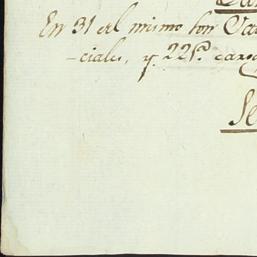 En 31 del mismo son Va
-ciales, y 221p.s carg
Se